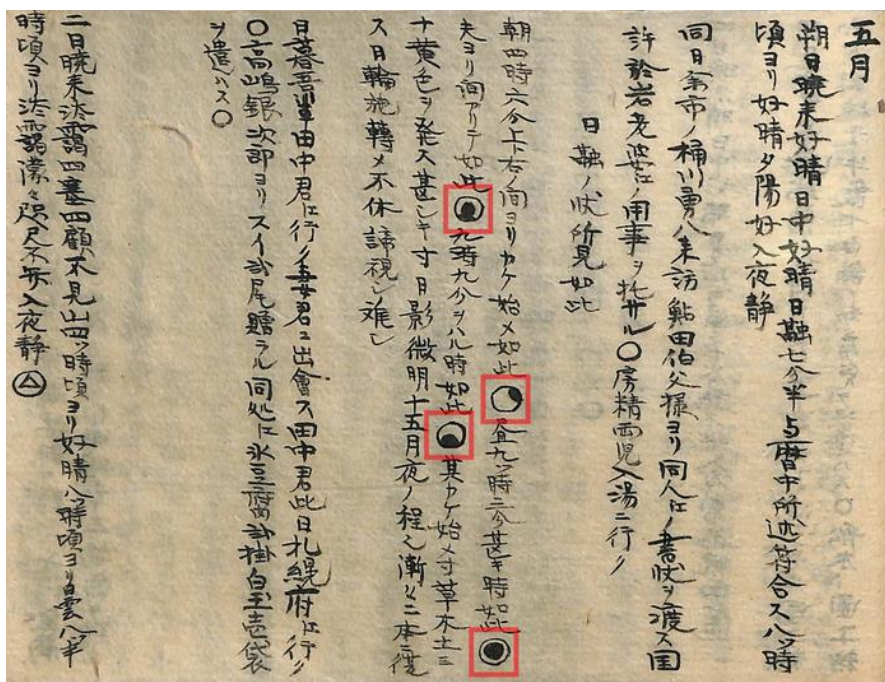 五月
朔日暁来好晴日中好晴日融七分半与暦中所述符合ス八ツ時
頃ヨリ好晴夕陽好入夜静
同日余市ノ桶川勇八来訪鮎田伯父様ヨリ同人江ノ書状ヲ渡ス国
許於岩老婆江ノ用事ヲ托サル〇房精両児入湯ニ行ク
日融ノ状所見如此
朝四時六分上ト右ノ間ヨリカケ始メ如此 昼九ツ時三分甚キ時如此
夫ヨリ間アリテ如此 九時九分ヲハル時如此 其カケ始メ寸草木土ニ
十黄色ヲ発ス甚シキ寸日影微明十五月夜ノ程ニ漸々ニ本ニ復
ス日輪旋轉メ不休諦視シ難シ
日暮吾輩田中君江行ク妻君ニ出會ス田中君此日札縨府江行ク
〇高嶋銀次郎ヨリスイ弐尾贈ラル同処江氷豆腐弐掛白玉壱袋
ヲ遣ハス〇
二日暁来濛靄四塞四顧不見山四ツ時頃ヨリ好晴八ツ時頃ヨリ白雲八半
時頃ヨリ濛靄濛々咫尺不弁入夜静